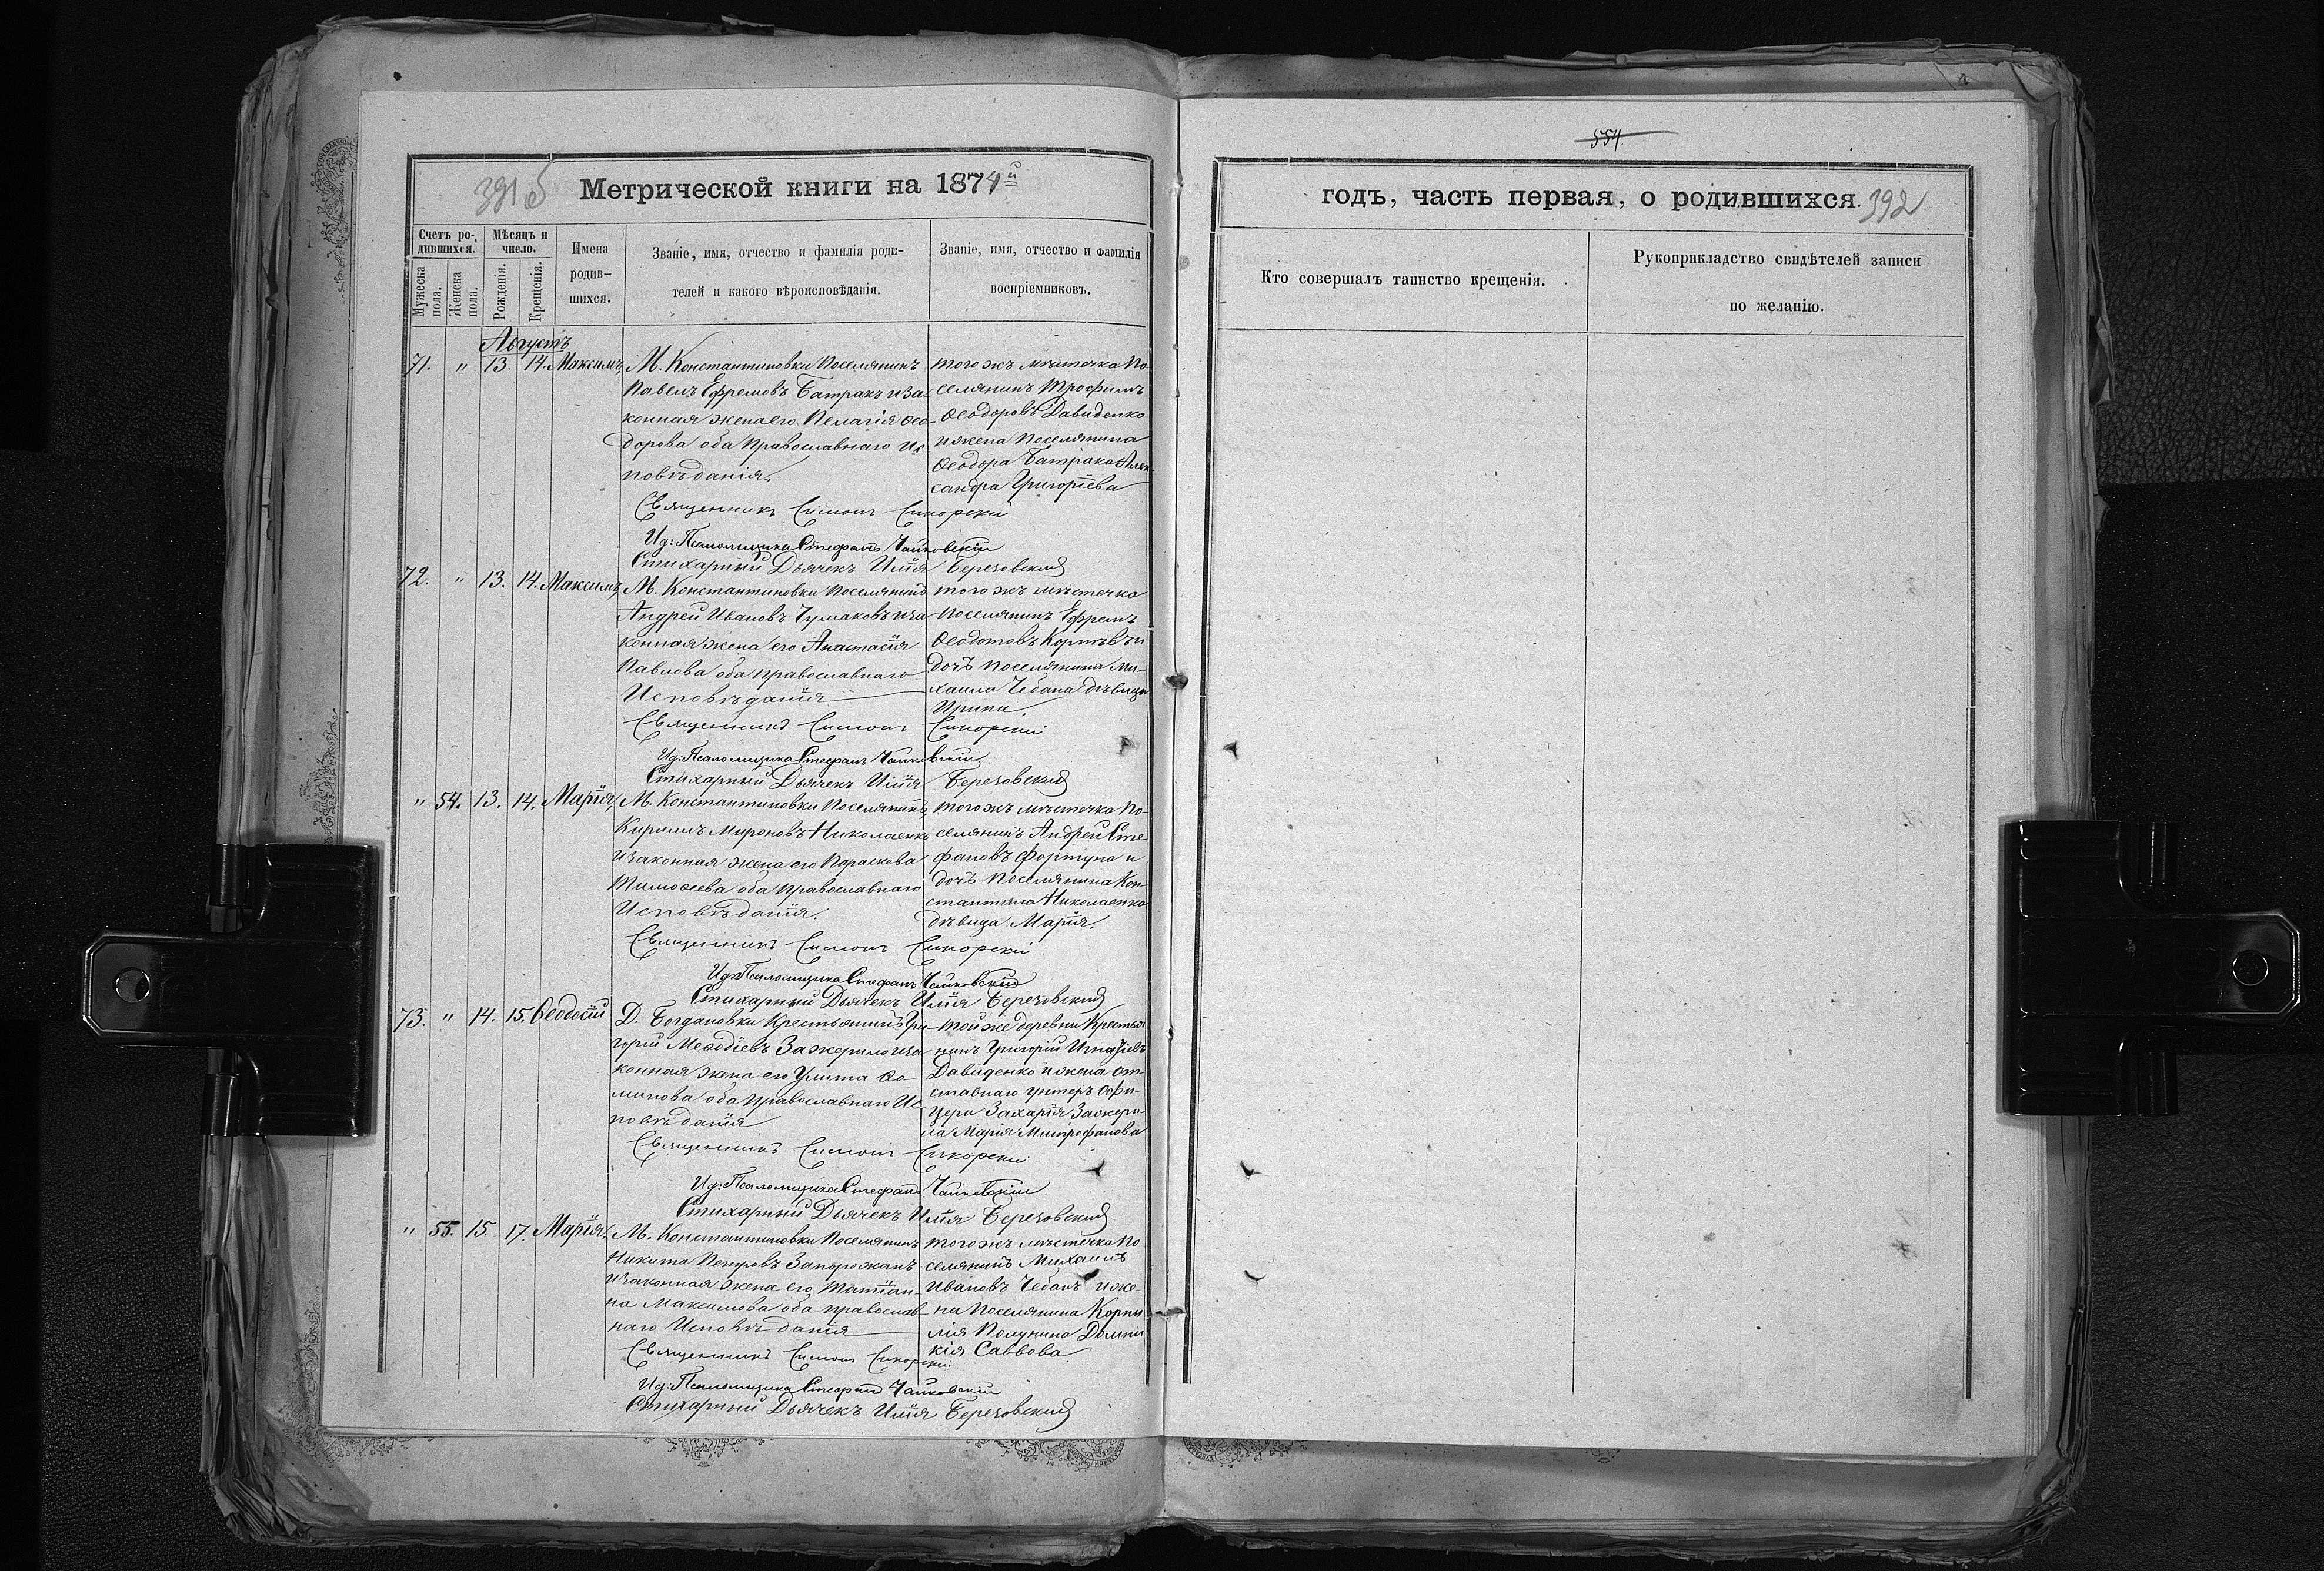 554.
391 об
Метрической книги на 1874й
годъ, часть первая, о родившихся.
392
Счетъ ро-
дившихся.
Мужеска пола.
Женска пола.
Мѣсяцъ и
число.
Рожденія.
Крещенія.
Имена
родив-
шихся.
Званіе, имя, отчество и фамилія роди-
телей и какого вѣроисповѣданія.
Званіе, имя, отчество и фамилія
воспріемниковъ.
Кто совершалъ таинство крещенія.
Рукоприкладство свидѣтелей записи
по желанію.
Августъ
71. " 13. 14. Максимъ,
М. Константиновки Поселянинъ
Павелъ Ефремовъ Батракъ и за-
конная жена его Пелагія Ѳео-
дорова оба Православнаго Ис-
повѣданія.
того жъ мѣстечка По
селянинъ Трофимъ
Ѳеодоровъ Давиденко
и жена Поселянина
Ѳеодора Батрака Алек-
сандра Григоріева
Священникъ Симонъ Сикорскій
Ид: Псаломщика Стефанъ Чайковскій
Стихарный Дьячекъ Илія Березовскій
72. " 13. 14. Максимъ,
М. Константиновки Поселянинъ
Андрей Ивановъ Чумаковъ и за-
конная жена его Анастасія
Павлова оба православнаго
Исповѣданія
того жъ мѣстечка
Поселянинъ Ефремъ
Ѳеодотовъ Корнѣвъ и
дочь поселянина Ми-
хаила Чебана дѣвица
Ирина
Священникъ Симонъ Сикорскій
Ид: Псаломщика Стефанъ Чайковскій
Стихарный Дьячекъ Илія Березовскій
" 54. 13. 14. Марія,
М. Константиновки Поселянинъ
Кирилъ Мироновъ Николаенко
и законная жена его Параскева
Тимоѳеева оба православнаго
Исповѣданія.
того жъ мѣстечка По-
селянинъ Андрей Сте
фановъ Фортуна и
дочь Поселянина Кон-
стантина Николаенка
дѣвица Марія.
Священникъ Симонъ Сикорскій
Ид: Псаломщика Стефанъ Чайковскій
Стихарный Дьячекъ Илія Березовскій
73. " 14. 15. Ѳеодосій
Д. Богдановки Крестьянинъ Гри-
горій Меѳодіевъ Зажерило и за-
конная жена его Улита Ѳо-
минова оба православнаго Ис-
повѣданія
той же деревни Крестья
нинъ Григорій Игнатіевъ
Давиденко и жена от-
ставнаго унтеръ офи-
цера Захарія Зажери-
ла Марія Митрофанова
Священникъ Симонъ Сикорскій
Ид: Псаломщика Стефанъ Чайковскій
Стихарный Дьячекъ Илія Березовскій
" 55. 15. 17. Марія.
М. Константиновки Поселянинъ
Никита Петровъ Запорожанъ
и законная жена его Татіан-
на Максимова оба православ-
наго Исповѣданія
того жъ мѣстечка По
селянинъ Михаилъ
Ивановъ Чебанъ и же-
на Поселянина Корни
лія Полунина Домни
кія Саввова
Священникъ Симонъ Сикорскій
Ид: Псаломщика Стефанъ Чайковскій
Стихарный Дьячекъ Илія Березовскій